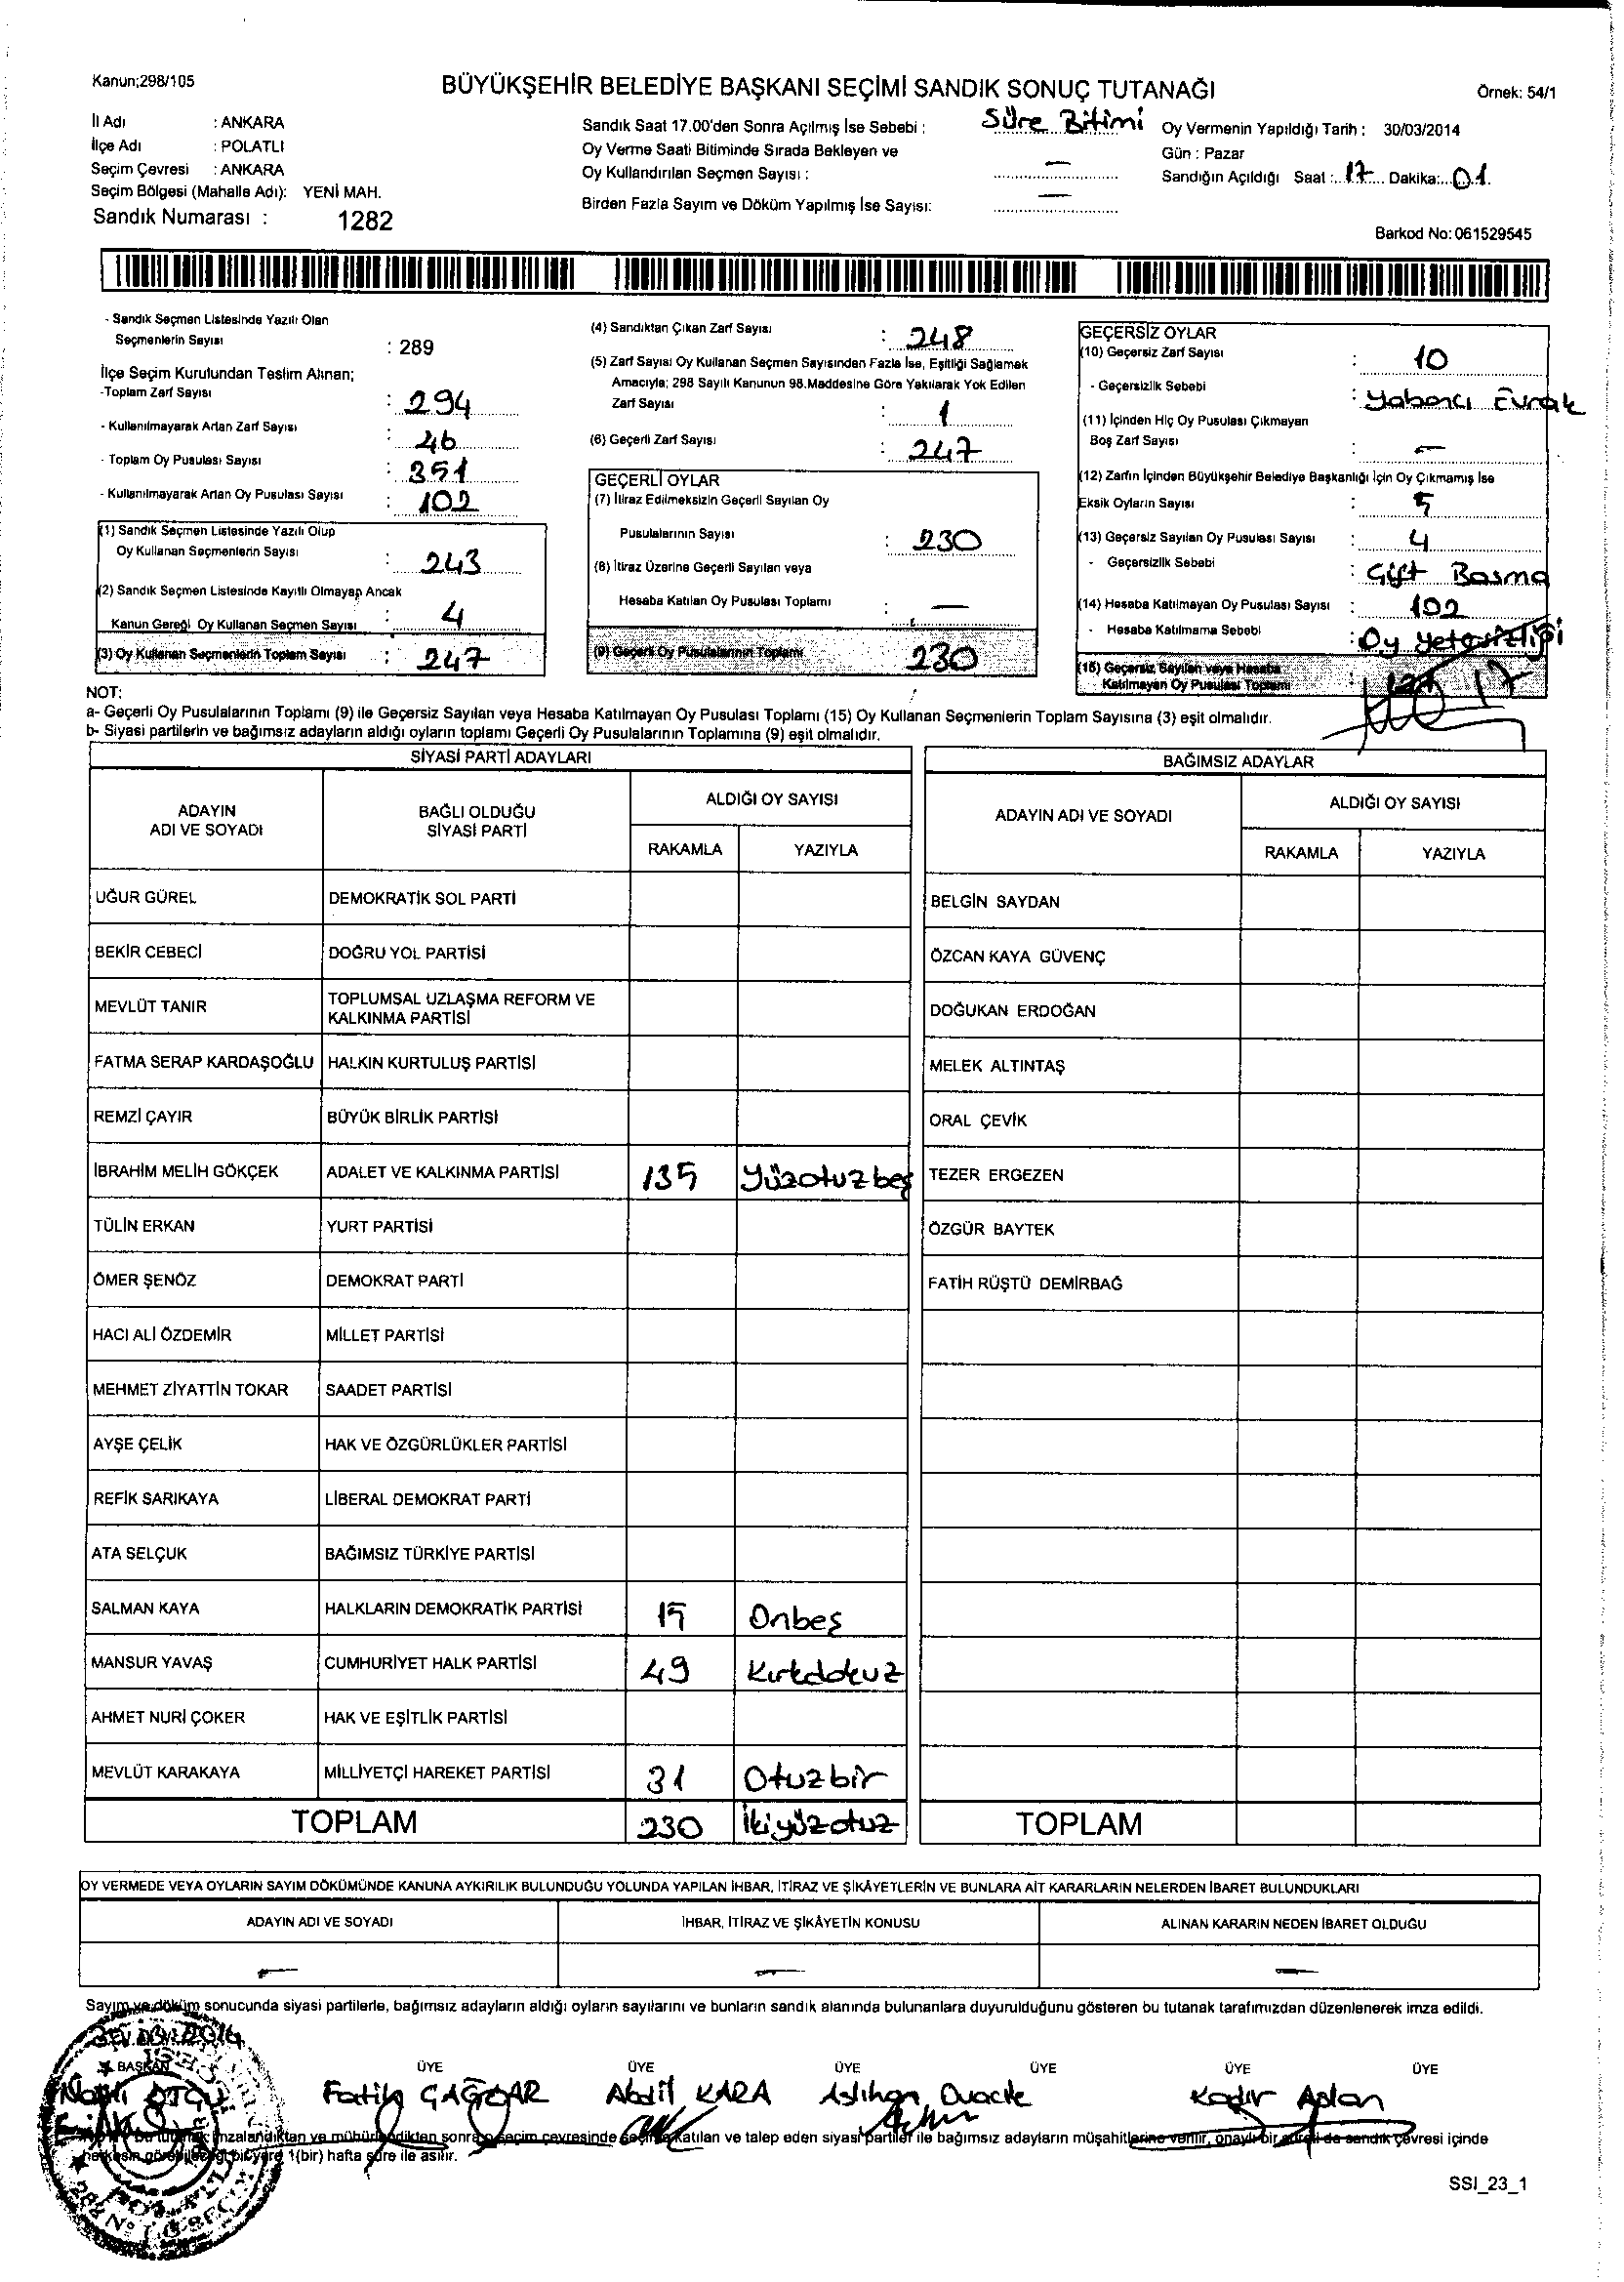 Kanun;298/105
BÜYÜKŞEHİR BELEDİYE BAŞKANI SEÇİMİ SANDIK SONUÇ TUTANAĞI
Örnek: 54/1
İl Adı : ANKARA
İlçe Adı : POLATLI
Seçim Çevresi : ANKARA
Seçim Bölgesi (Mahalle Adı): YENİ MAH.
Sandık Numarası : 1282
Sandık Saat 17.00'den Sonra Açılmış İse Sebebi : Süre Bitimi
Oy Verme Saati Bitiminde Sırada Bekleyen ve
Oy Kullandırılan Seçmen Sayısı : —
Birden Fazla Sayım ve Döküm Yapılmış İse Sayısı: —
Oy Vermenin Yapıldığı Tarih : 30/03/2014
Gün : Pazar
Sandığın Açıldığı Saat : 17 Dakika: 01
Barkod No: 061529545
- Sandık Seçmen Listesinde Yazılı Olan
Seçmenlerin Sayısı : 289
İlçe Seçim Kurulundan Teslim Alınan;
-Toplam Zarf Sayısı : 294
- Kullanılmayarak Artan Zarf Sayısı : 46
- Toplam Oy Pusulası Sayısı : 351
- Kullanılmayarak Artan Oy Pusulası Sayısı : 102
(1) Sandık Seçmen Listesinde Yazılı Olup
Oy Kullanan Seçmenlerin Sayısı : 243
(2) Sandık Seçmen Listesinde Kayıtlı Olmayap Ancak
Kanun Gereği Oy Kullanan Seçmen Sayısı : 4
(3) Oy Kullanan Seçmenlerin Toplam Sayısı : 247
(4) Sandıktan Çıkan Zarf Sayısı : 248
(5) Zarf Sayısı Oy Kullanan Seçmen Sayısından Fazla İse, Eşitliği Sağlamak
Amacıyla; 298 Sayılı Kanunun 98.Maddesine Göre Yakılarak Yok Edilen
Zarf Sayısı : 1
(6) Geçerli Zarf Sayısı : 247
GEÇERLİ OYLAR
(7) İtiraz Edilmeksizin Geçerli Sayılan Oy
Pusulalarının Sayısı : 230
(8) İtiraz Üzerine Geçerli Sayılan veya
Hesaba Katılan Oy Pusulası Toplamı : —
(9) Geçerli Oy Pusulalarının Toplamı 230
GEÇERSİZ OYLAR
(10) Geçersiz Zarf Sayısı : 10
- Geçersizlik Sebebi : Yabancı Evrak
(11) İçinden Hiç Oy Pusulası Çıkmayan
Boş Zarf Sayısı : —
(12) Zarfın İçinden Büyükşehir Belediye Başkanlığı İçin Oy Çıkmamış İse
Eksik Oyların Sayısı : 5
(13) Geçersiz Sayılan Oy Pusulası Sayısı : 4
- Geçersizlik Sebebi : Çift Basma
(14) Hesaba Katılmayan Oy Pusulası Sayısı : 102
- Hesaba Katılmama Sebebi : Oy yetersizliği
(15) Geçersiz Sayılan veya Hesaba
Katılmayan Oy Pusulası Toplamı : 17
NOT:
a- Geçerli Oy Pusulalarının Toplamı (9) ile Geçersiz Sayılan veya Hesaba Katılmayan Oy Pusulası Toplamı (15) Oy Kullanan Seçmenlerin Toplam Sayısına (3) eşit olmalıdır.
b- Siyasi partilerin ve bağımsız adayların aldığı oyların toplamı Geçerli Oy Pusulalarının Toplamına (9) eşit olmalıdır.
SİYASİ PARTİ ADAYLARI
ADAYIN ADI VE SOYADI BAĞLI OLDUĞU SİYASİ PARTİ ALDIĞI OY SAYISI
RAKAMLA YAZIYLA
UĞUR GÜREL DEMOKRATİK SOL PARTİ
BEKİR CEBECİ DOĞRU YOL PARTİSİ
MEVLÜT TANIR TOPLUMSAL UZLAŞMA REFORM VE KALKINMA PARTİSİ
FATMA SERAP KARDAŞOĞLU HALKIN KURTULUŞ PARTİSİ
REMZİ ÇAYIR BÜYÜK BİRLİK PARTİSİ
İBRAHİM MELİH GÖKÇEK ADALET VE KALKINMA PARTİSİ 135 Yüzotuzbeş
TÜLİN ERKAN YURT PARTİSİ
ÖMER ŞENÖZ DEMOKRAT PARTİ
HACI ALİ ÖZDEMİR MİLLET PARTİSİ
MEHMET ZİYATTİN TOKAR SAADET PARTİSİ
AYŞE ÇELİK HAK VE ÖZGÜRLÜKLER PARTİSİ
REFİK SARIKAYA LİBERAL DEMOKRAT PARTİ
ATA SELÇUK BAĞIMSIZ TÜRKİYE PARTİSİ
SALMAN KAYA HALKLARIN DEMOKRATİK PARTİSİ 15 Onbeş
MANSUR YAVAŞ CUMHURİYET HALK PARTİSİ 49 Kırkdokuz
AHMET NURİ ÇOKER HAK VE EŞİTLİK PARTİSİ
MEVLÜT KARAKAYA MİLLİYETÇİ HAREKET PARTİSİ 31 Otuzbir
TOPLAM 230 İkiyüzotuz
BAĞIMSIZ ADAYLAR
ADAYIN ADI VE SOYADI ALDIĞI OY SAYISI
RAKAMLA YAZIYLA
BELGİN SAYDAN
ÖZCAN KAYA GÜVENÇ
DOĞUKAN ERDOĞAN
MELEK ALTINTAŞ
ORAL ÇEVİK
TEZER ERGEZEN
ÖZGÜR BAYTEK
FATİH RÜŞTÜ DEMİRBAĞ
TOPLAM
OY VERMEDE VEYA OYLARIN SAYIM DÖKÜMÜNDE KANUNA AYKIRILIK BULUNDUĞU YOLUNDA YAPILAN İHBAR, İTİRAZ VE ŞİKÂYETLERİN VE BUNLARA AİT KARARLARIN NELERDEN İBARET BULUNDUKLARI
ADAYIN ADI VE SOYADI İHBAR, İTİRAZ VE ŞİKÂYETİN KONUSU ALINAN KARARIN NEDEN İBARET OLDUĞU
— — —
Sayım ve döküm sonucunda siyasi partilerle, bağımsız adayların aldığı oyların sayılarını ve bunların sandık alanında bulunanlara duyurulduğunu gösteren bu tutanak tarafımızdan düzenlenerek imza edildi.
BAŞKAN ÜYE ÜYE ÜYE ÜYE ÜYE ÜYE
Fatih ÇAĞLAR Abdil KARA Aslıhan Kadir Aslan
bu tutanak imzalandıktan ve mühürlendikten sonra seçim çevresinde seçime katılan ve talep eden siyasi partiler ile bağımsız adayların müşahitlerine verilir, onaylı bir sureti de sandık çevresi içinde
herkesin görebileceği bir yere 1(bir) hafta süre ile asılır.
SSI_23_1